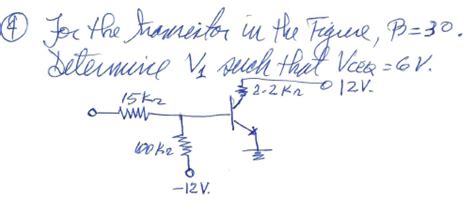 ④ For the transistor in the Figure, β=30.
Determine V₁ such that VCEQ = 6V.
15KΩ
2.2KΩ
12V.
100KΩ
-12V.